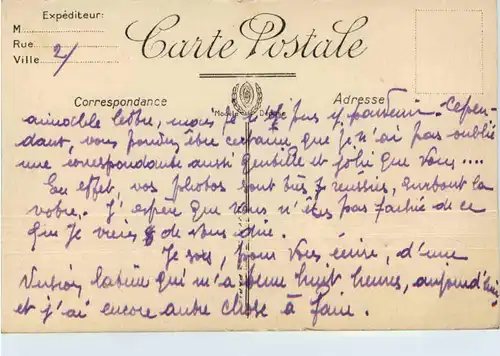 Expéditeur:
M
Rue
Ville 2/
Carte Postale
Correspondance
Adresse
aimable lettre, mais je n'ai pus y parvenir. Cepen-
dant, vous pouvez être certaine, que je n'ai pas oublié
une correspondante aussi gentille et jolie que vous ....
En effet, vos photos sont très réussies, surtout la
votre. J'espère que vous n'êtes pas fachée de ce
que je viens de vous dire.
Je sors, pour vous écrire, d'une
version latine qui m'a pris huit heures, aujourd'hui
et j'ai encore autre chose à faire.